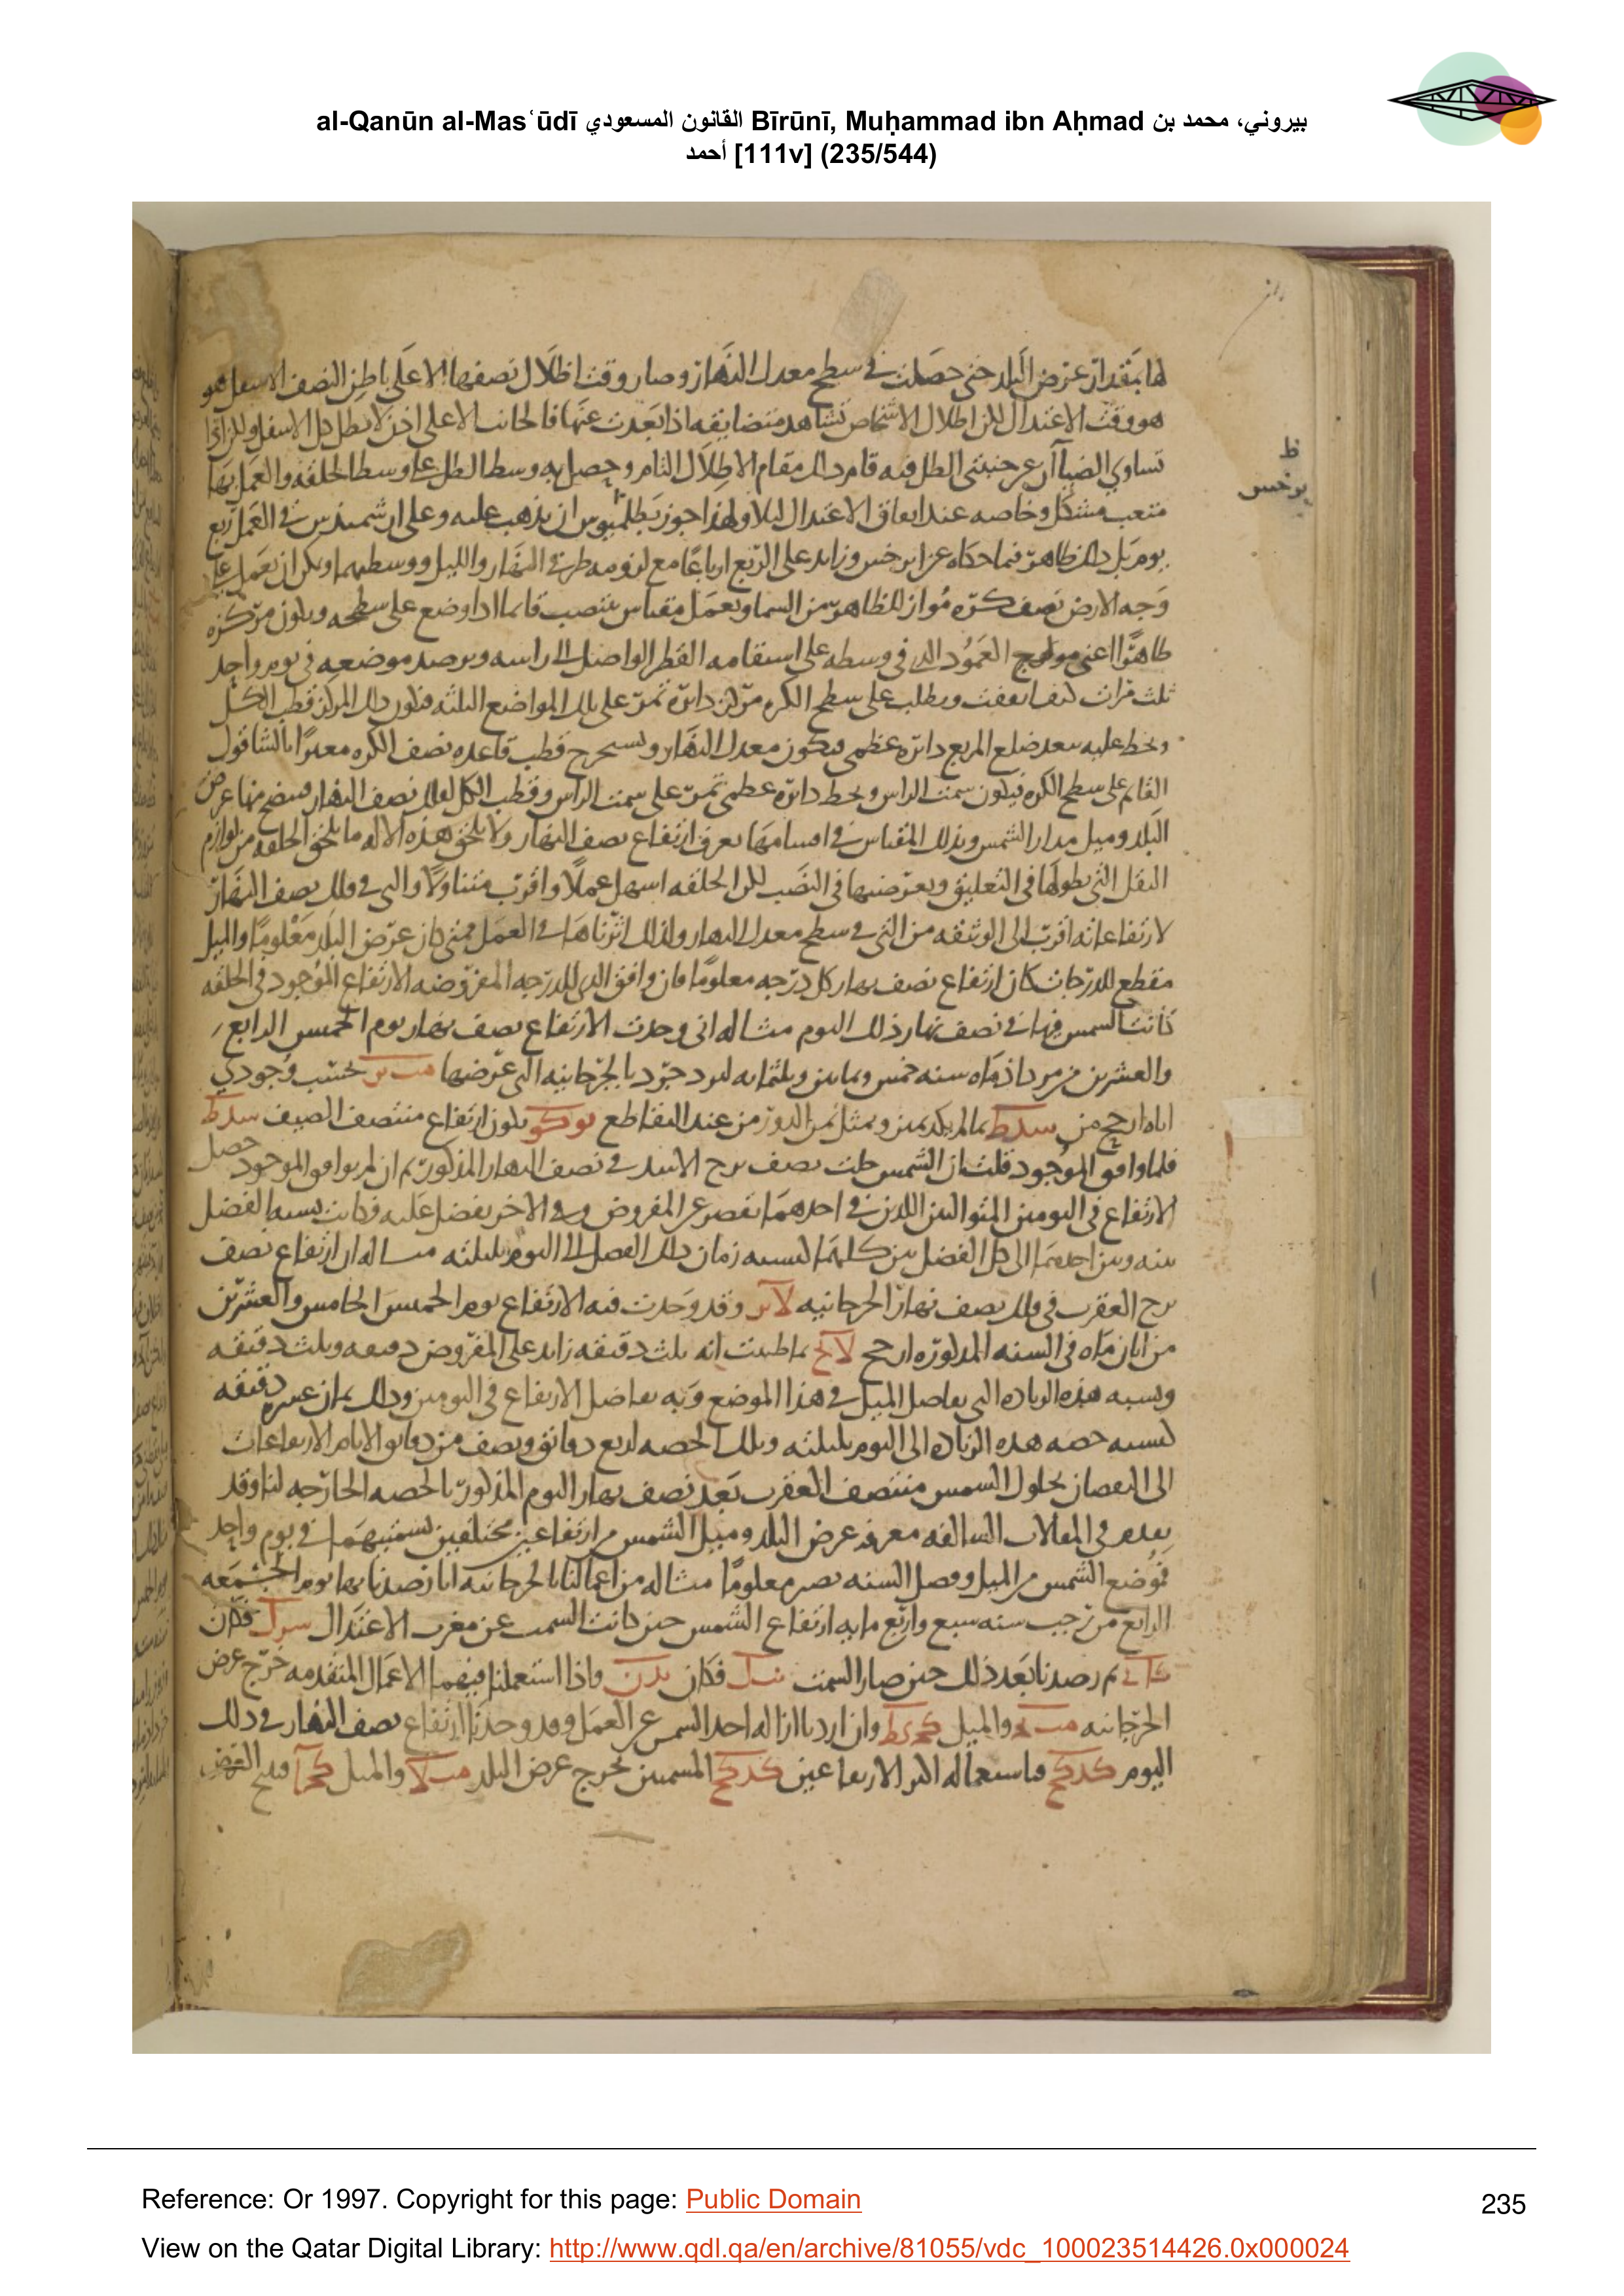 al-Qanūn al-Masʿūdī القانون المسعودي Bīrūnī, Muḥammad ibn Aḥmad بيروني، محمد بن
أحمد [111v] (235/544)
لها بمقدار عرض البلد حتى حصلت في سطح معدل النهار وصار وقت اظلال نصفها الاعلى باطن النصف الاسفل هو
هو وقت الاعتدال لكن اظلال الاشخاص تشاهد متضايقه اذا بعدت عنها فالجانب الاعلى اذن لا يظل كل الاسفل
ظ
برخس
تساوي الضياآن عن جنبتي الظل فيه قام ذلك مقام الاظلال التام وحصل به وسط الظل على وسط الحلقه والعمل بها
متعب مشكل وخاصه عند اتفاق الاعتدال ليلا ولهذا جوز بطلميوس ان يذهب عليه وعلى ارشميدس في العمل ربع
يوم بل ذلك ظاهر فيما حكاه عن ابرخس وزايد على الربع ارباعا مع لزومه طرفي النهار والليل ووسطيهما ويمكن ان نعمل على
وجه الارض نصف كره مواز للظاهر من السماء ونعمل مقياس ينتصب قائما اذا وضع على سطحه ويكون مركزه
ظاهرا اعني العمود الذي في وسطه على استقامه القطر الواصل الى راسه ويرصد موضعه في يوم واحد
ثلث مرات كيف اتفقت ويطلب على سطح الكره مركز دائره تمر على تلك المواضع الثلثه فيكون ذلك المركز قطب الكل
ونخط عليه ببعد ضلع المربع دائره عظمى فيكون معدل النهار ونستخرج قطب قاعده نصف الكره معتبرا بالشاقول
القائم على سطح الكره فيكون سمت الراس ونخط دائره عظمى تمر على سمت الراس وقطب الكل لفلك نصف النهار فيتضح منها عرض
البلد وميل مدار الشمس وبذلك المقياس في اقسامها يعرف ارتفاع نصف النهار ولا يلحق هذه الاله ما يلحق الحلقه من لوازم
الثقل التي بطولها في التعليق وبعرضها في النصب لكن الحلقه اسهل عملا واقرب متناولا والتي في فلك نصف النهار
لارتفاعاته اقرب الى الوثيقه من التي في سطح معدل النهار ولذلك اثرناها في العمل فمتى كان عرض البلد معلوما والميل
مقطع للدرجات كان ارتفاع نصف نهار كل درجه معلوما فان وافق الذي للدرجه المفروضه الارتفاع الموجود في الحلقه
كانت الشمس فيها في نصف نهار ذلك اليوم مثاله اني وجدت الارتفاع نصف نهار يوم الخميس الرابع
والعشرين من مرداذ ماه سنه خمس وثمانين وثلثمايه ليزدجرد بالجرجانيه التي عرضها مب يز بحسب وجودي
اياه ارجح من سدكط بما لم يكد يتبين وبمثل ثمن الدور من عند التقاطع يوكو يكون ارتفاع منتصف الصيف سدكط
فلما وافق الموجود قلت ان الشمس حلت نصف برج الاسد في نصف النهار المذكور ثم ان لم يوافق الموجود حصل
الارتفاع في اليومين المتواليين اللذين في احدهما يقصر عن المفروض وفي الاخر يفضل عليه فكانت نسبه الفضل
بينه وبين احدهما الى كل الفضل بين كليهما كنسبه زمان ذلك الفضل الى اليوم بليلته مثاله ان ارتفاع نصف
برج العقرب في فلك نصف نهار الجرجانيه لا يز وقد وجدت فيه الارتفاع يوم الخميس الخامس والعشرين
من ابان ماه في السنه المذكوره ارجح لا ح بما ظننت انه ثلث دقيقه زايد على المفروض دقيقه وثلث دقيقه
ونسبه هذه الزياده الى تفاضل الميل في هذا الموضع وبه تفاضل الارتفاع في اليومين وذلك ثمان عشره دقيقه
كنسبه حصه هذه الزياده الى اليوم بليلته وتلك الحصه اربع دقائق ونصف من دقائق الايام الارتفاعات
الى النقصان بحلول الشمس منتصف العقرب بعد نصف نهار اليوم المذكور بالحصه الخارجه لنا وقد
يقدم في المقالات السالفه معرفه عرض البلد وميل الشمس من ارتفاعين مختلفين بسمتيهما في يوم واحد
فموضع الشمس من الميل وفصل السنه يصير معلوما مثاله من اعمالنا بالجرجانيه انا رصدنا بها يوم الجمعه
الرابع من رجب سنه سبع واربع مايه ارتفاع الشمس حين كانت السمت عن مغرب الاعتدال فكان
ثم رصدنا بعد ذلك حين صار السمت فكان واذا استعملنا فيهما الاعمال المتقدمه خرج عرض
الجرجانيه والميل وان اردنا ازاله احد السمتين عن العمل وقد وجدنا ارتفاع نصف النهار في ذلك
اليوم كدكح فاستعماله اكبر الارتفاعين كدكح المسمين يخرج عرض البلد والميل
Reference: Or 1997. Copyright for this page: Public Domain
235
View on the Qatar Digital Library: http://www.qdl.qa/en/archive/81055/vdc_100023514426.0x000024